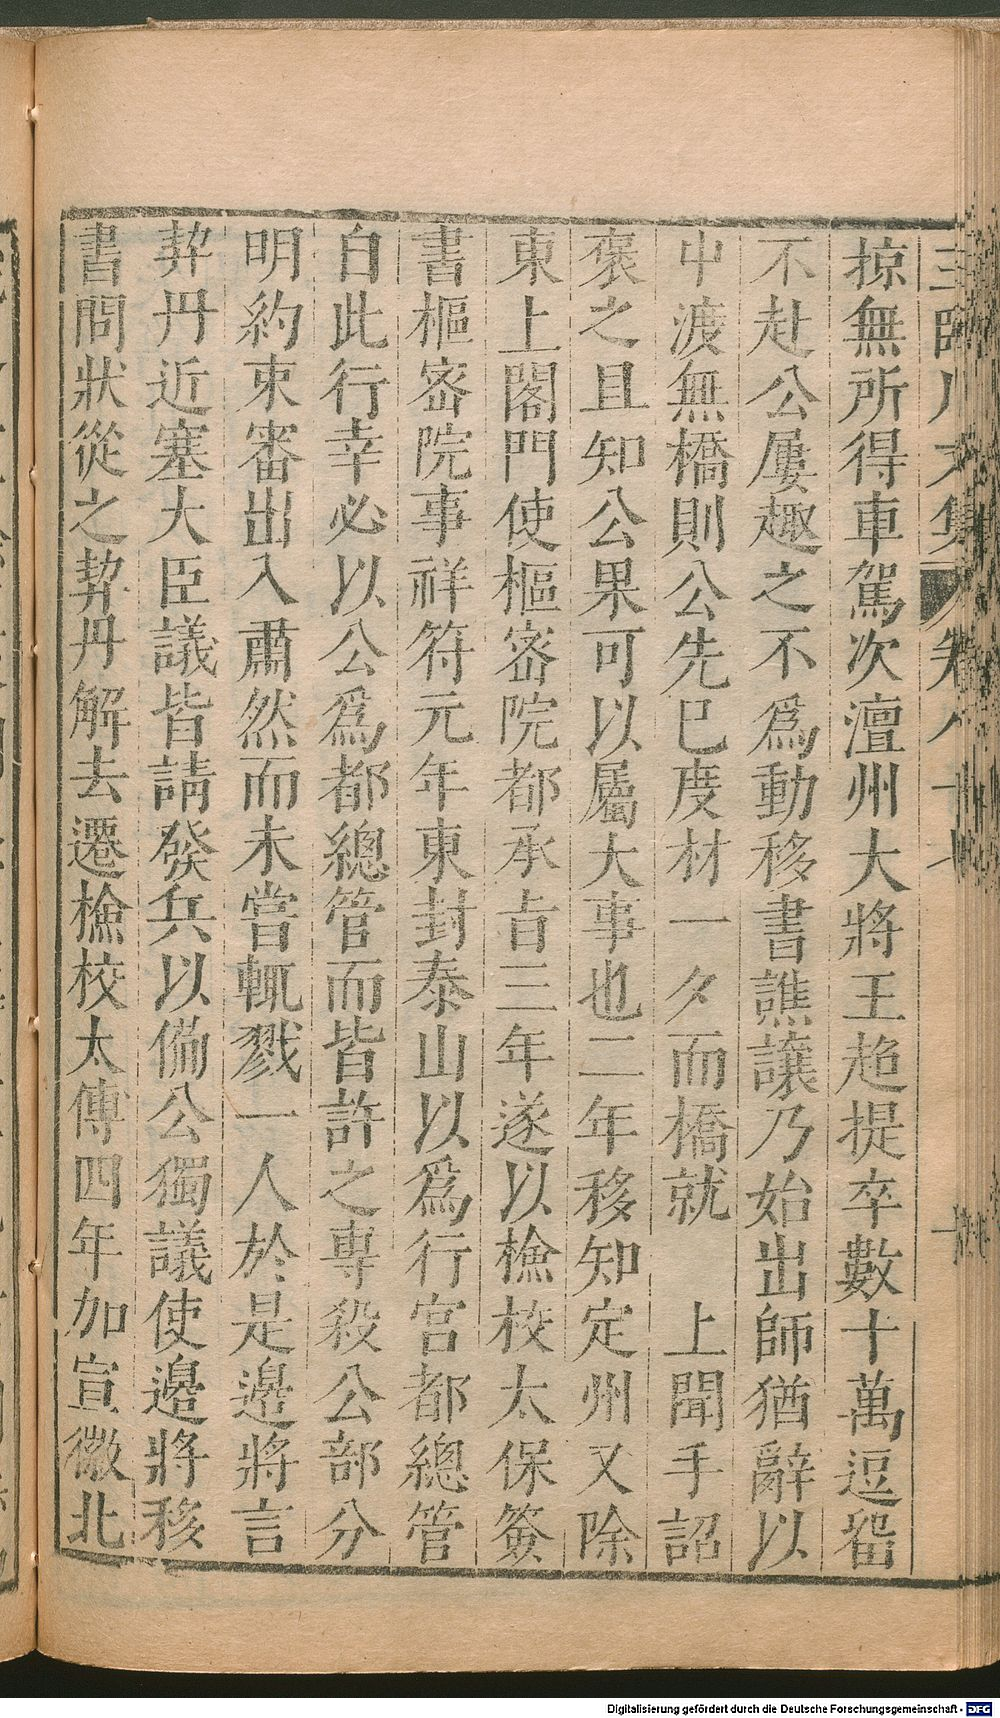 掠無所得車駕次澶州大將王超提卒數十萬逗留
不赴公屢趣之不爲動移書譙讓乃始出師猶辭以
中渡無橋則公先已度材一夕而橋就　上聞手詔
褒之且知公果可以屬大事也二年移知定州又除
東上閤門使樞密院都承旨三年遂以檢校太保簽
書樞密院事祥符元年東封泰山以爲行宮都總管
自此行幸必以公爲都總管而皆許之專殺公部分
明約束審出入肅然而未嘗輒戮一人於是邊將言
契丹近塞大臣議皆請發兵以備公獨議使邊將移
書問狀從之契丹解去遷檢校太傅四年加宣徽北
Digitalisierung gefördert durch die Deutsche Forschungsgemeinschaft - DFG